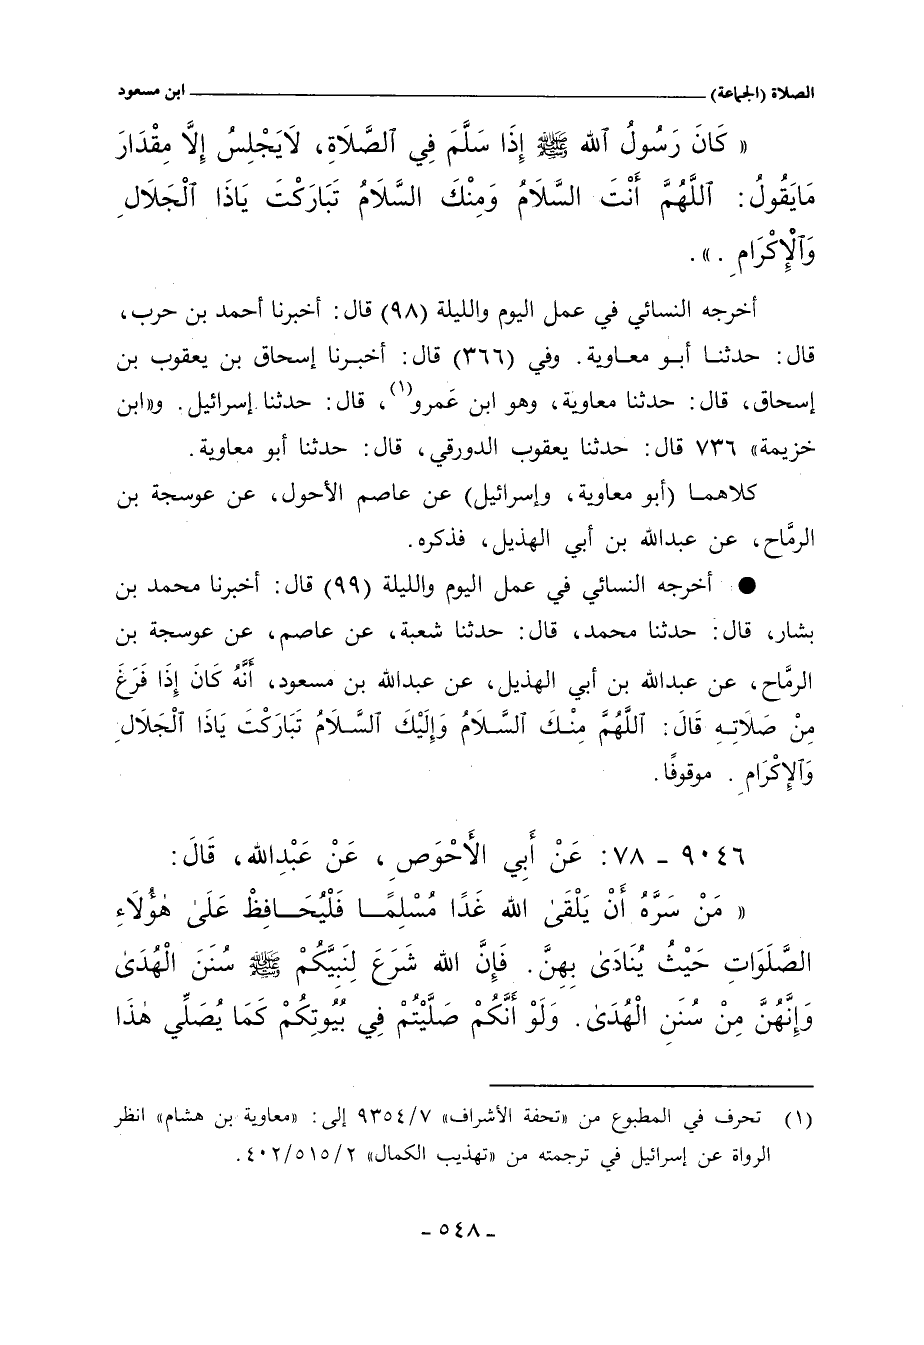 الصلاة (الجماعة) ابن مسعود
« كَانَ رَسُولُ ٱللهِ ﷺ إِذَا سَلَّمَ فِي ٱلصَّلَاةِ، لَايَجْلِسُ إِلَّا مِقْدَارَ
مَايَقُولُ: ٱللَّهُمَّ أَنْتَ السَّلَامُ وَمِنْكَ السَّلَامُ تَبَارَكْتَ يَاذَا ٱلْجَلَالِ
وَٱلْإِكْرَامِ .».
أخرجه النسائي في عمل اليوم والليلة (٩٨) قال: أخبرنا أحمد بن حرب،
قال: حدثنا أبو معاوية. وفي (٣٦٦) قال: أخبرنا إسحاق بن يعقوب بن
إسحاق، قال: حدثنا معاوية، وهو ابن عَمرو(١)، قال: حدثنا إسرائيل. و«ابن
خزيمة» ٧٣٦ قال: حدثنا يعقوب الدورقي، قال: حدثنا أبو معاوية.
كلاهما (أبو معاوية، وإسرائيل) عن عاصم الأحول، عن عوسجة بن
الرمَّاح، عن عبدالله بن أبي الهذيل، فذكره.
● أخرجه النسائي في عمل اليوم والليلة (٩٩) قال: أخبرنا محمد بن
بشار، قال: حدثنا محمد، قال: حدثنا شعبة، عن عاصم، عن عوسجة بن
الرمَّاح، عن عبدالله بن أبي الهذيل، عن عبدالله بن مسعود، أَنَّهُ كَانَ إِذَا فَرَغَ
مِنْ صَلَاتِهِ قَالَ: ٱللَّهُمَّ مِنْكَ ٱلسَّلَامُ وَإِلَيْكَ ٱلسَّلَامُ تَبَارَكْتَ يَاذَا ٱلْجَلَالِ
وَٱلإِكْرَامِ . موقوفًا.
٩٠٤٦ - ٧٨: عَنْ أَبِي الأَحْوَصِ، عَنْ عَبْدِالله، قَالَ:
« مَنْ سَرَّهُ أَنْ يَلْقَىٰ الله غَدًا مُسْلِمًا فَلْيُحَافِظْ عَلَىٰ هٰؤُلَاءِ
الصَّلَوَاتِ حَيْثُ يُنَادَىٰ بِهِنَّ. فَإِنَّ الله شَرَعَ لِنَبِيِّكُمْ ﷺ سُنَنَ الْهُدَىٰ
وَإِنَّهُنَّ مِنْ سُنَنِ الْهُدَىٰ. وَلَوْ أَنَّكُمْ صَلَّيْتُمْ فِي بُيُوتِكُمْ كَمَا يُصَلِّي هٰذَا
(١) تحرف في المطبوع من «تحفة الأشراف» ٩٣٥٤/٧ إلى: «معاوية بن هشام» انظر
الرواة عن إسرائيل في ترجمته من «تهذيب الكمال» ٤٠٢/٥١٥/٢.
- ٥٤٨ -